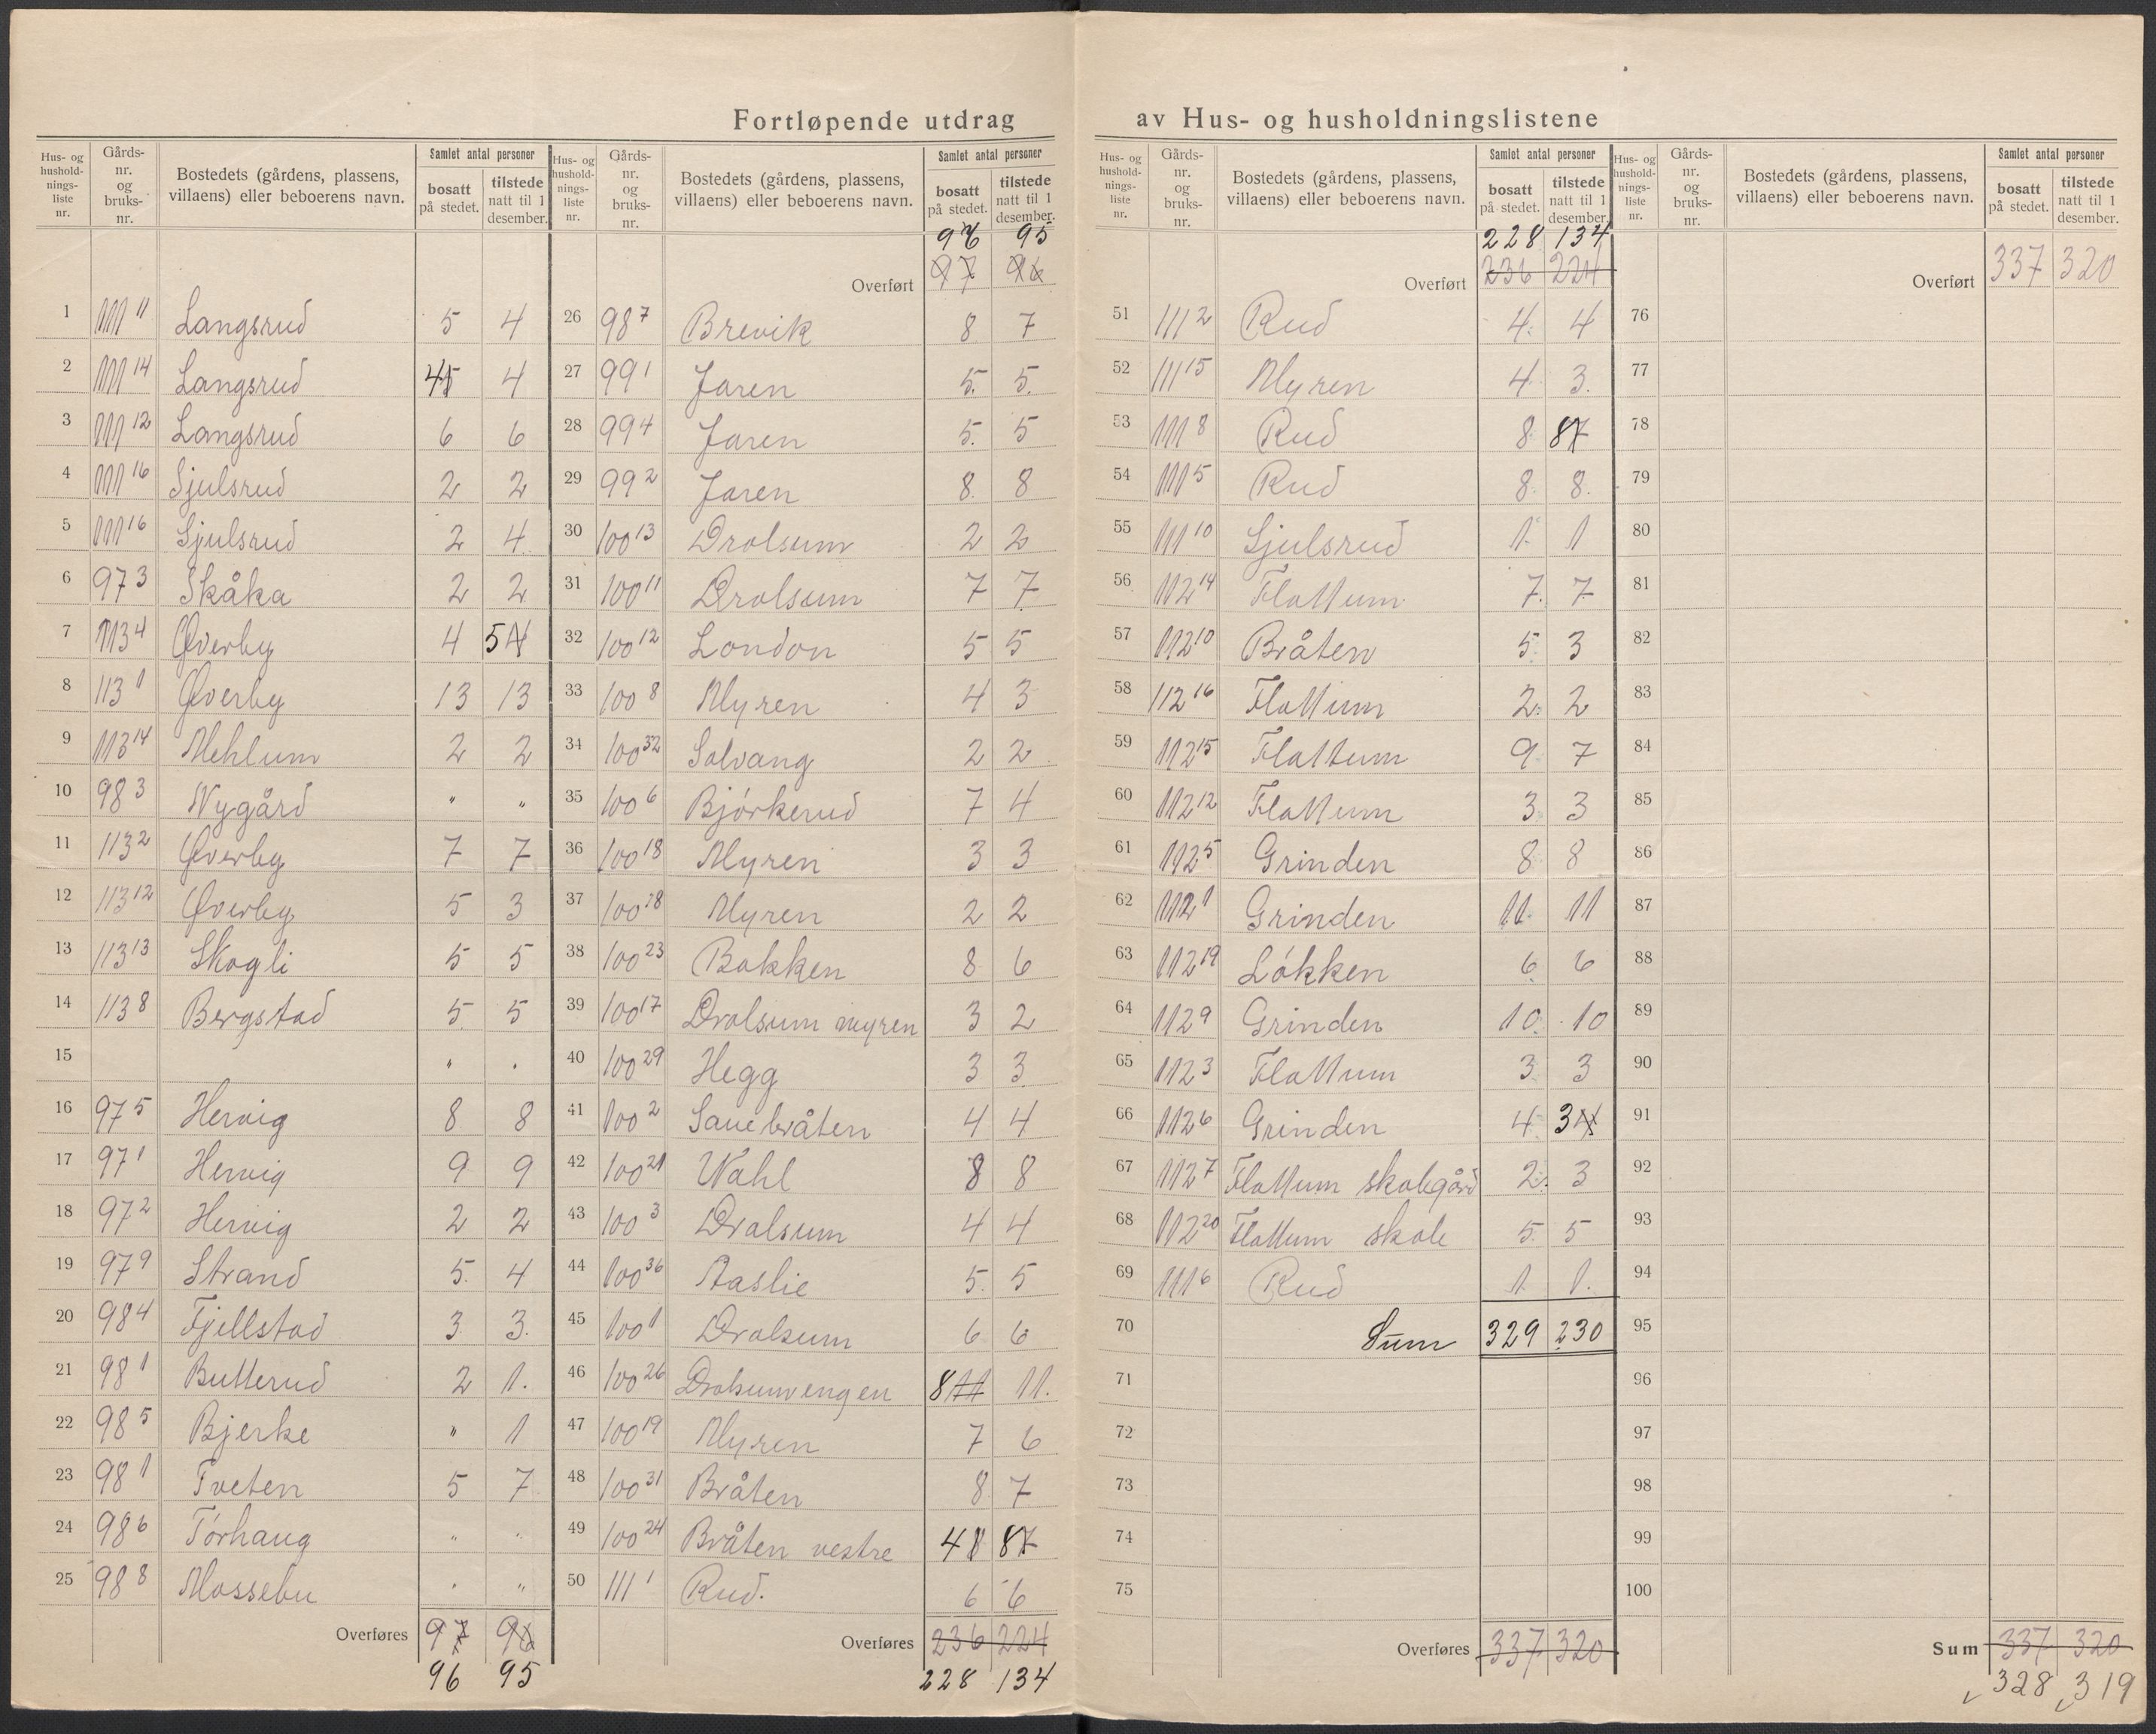 Fortløpende utdrag av Hus- og husholdningslistene
Hus- og husholdnings- liste nr. | Gårds- nr. og bruks- nr. | Bostedets (gårdens, plassens, villaens) eller beboerens navn. | Samlet antal personer | bosatt på stedet. | tilstede natt til 1 desember.
1 111 11 Langsrud 5 4
2 111 14 Langsrud 4 5 4
3 111 12 Langsrud 6 6
4 111 16 Sjulsrud 2 2
5 111 16 Sjulsrud 2 4
6 97 3 Skåka 2 2
7 113 4 Øverby 4 5 4
8 113 1 Øverby 13 13
9 113 14 Mehlum 2 2
10 98 3 Nygård " "
11 113 2 Øverby 7 7
12 113 12 Øverby 5 3
13 113 13 Skogli 5 5
14 113 8 Bergstad 5 5
15 " "
16 97 5 Hervig 8 8
17 97 1 Hervig 9 9
18 97 2 Hervig 2 2
19 97 9 Strand 5 4
20 98 4 Fjellstad 3 3
21 98 1 Butterud 2 1
22 98 5 Bjerke " 1
23 98 1 Tveten 5 7
24 98 6 Tórhaug " "
25 98 8 Mossebu " "
Overføres 97 96
96 95
Hus- og husholdnings- liste nr. | Gårds- nr. og bruks- nr. | Bostedets (gårdens, plassens, villaens) eller beboerens navn. | Samlet antal personer | bosatt på stedet. | tilstede natt til 1 desember.
96 95
Overført 97 96
26 98 7 Brevik 8 7
27 99 1 Jaren 5 5
28 99 4 Jaren 5 5
29 99 2 Jaren 8 8
30 100 13 Drolsum 2 2
31 100 11 Drolsum 7 7
32 100 12 London 5 5
33 100 8 Myren 4 3
34 100 32 Solvang 2 2
35 100 6 Bjórkerud 7 4
36 100 18 Myren 3 3
37 100 28 Myren 2 2
38 100 23 Bakken 8 6
39 100 17 Drolsum myren 3 2
40 100 29 Hegg 3 3
41 100 2 Sauebråten 4 4
42 100 21 Wahl 8 8
43 100 3 Drolsum 4 4
44 100 36 Aaslie 5 5
45 100 1 Drolsum 6 6
46 100 26 Drolsumengen 8 11 11
47 100 19 Myren 7 6
48 100 31 Bråten 8 7
49 100 24 Bråten vestre 4 8 8 7
50 111 1 Rud. 6 6
Overføres 236 224
228 134
Hus- og husholdnings- liste nr. | Gårds- nr. og bruks- nr. | Bostedets (gårdens, plassens, villaens) eller beboerens navn. | Samlet antal personer | bosatt på stedet. | tilstede natt til 1 desember.
228 134
Overført 236 224
51 111 2 Rud 4 4
52 111 15 Myren 4 3
53 111 8 Rud 8 8 7
54 111 5 Rud 8 8
55 111 10 Sjulsrud 1 1
56 112 14 Flattum 7 7
57 112 10 Bråten 5 3
58 112 16 Flattum 2 2
59 112 15 Flattum 9 7
60 112 12 Flattum 3 3
61 112 5 Grinden 8 8
62 112 1 Grinden 11 11
63 112 19 Lókken 6 6
64 112 9 Grinden 10 10
65 112 3 Flattum 3 3
66 112 6 Grinden 4 3 4
67 112 7 Flattum skolegård 2 3
68 112 20 Flattum skole 5 5
69 111 6 Rud 1 1
70 Sum 329 230
71
72
73
74
75
Overføres 337 320
Hus- og husholdnings- liste nr. | Gårds- nr. og bruks- nr. | Bostedets (gårdens, plassens, villaens) eller beboerens navn. | Samlet antal personer | bosatt på stedet. | tilstede natt til 1 desember.
Overført 337 320
76
77
78
79
80
81
82
83
84
85
86
87
88
89
90
91
92
93
94
95
96
97
98
99
100
Sum 337 320
328 319